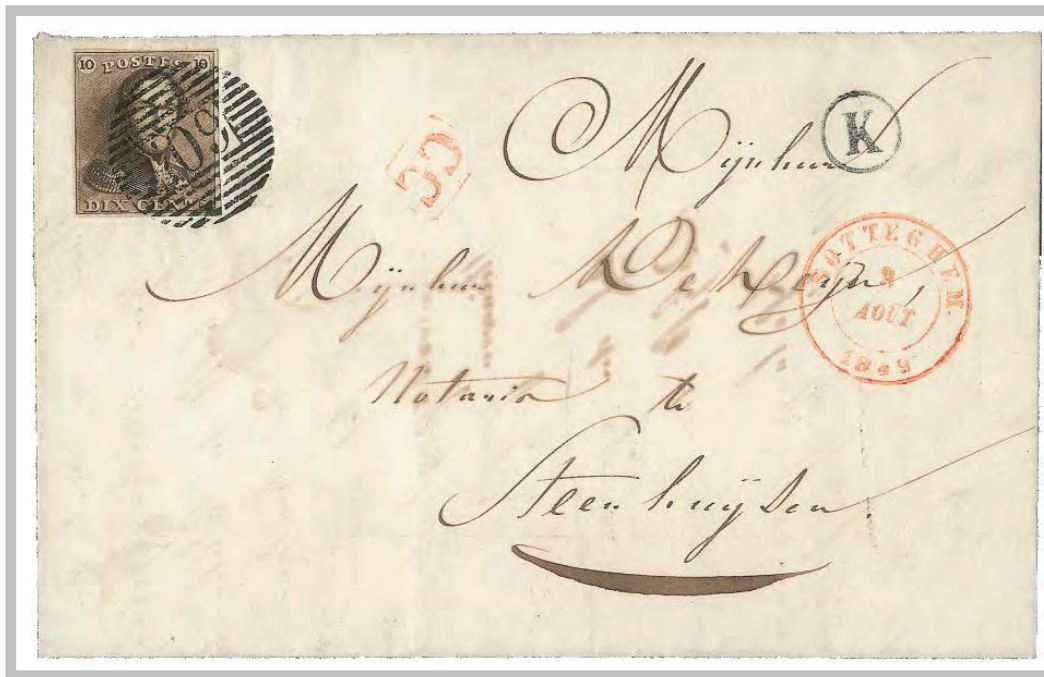 10 POSTES 10
DIX CENTS
CC
K
SOTTEGHEM.
AOUT
1849
Mijnheer
Mijnheer De
Notaris te
Steenhuysen.